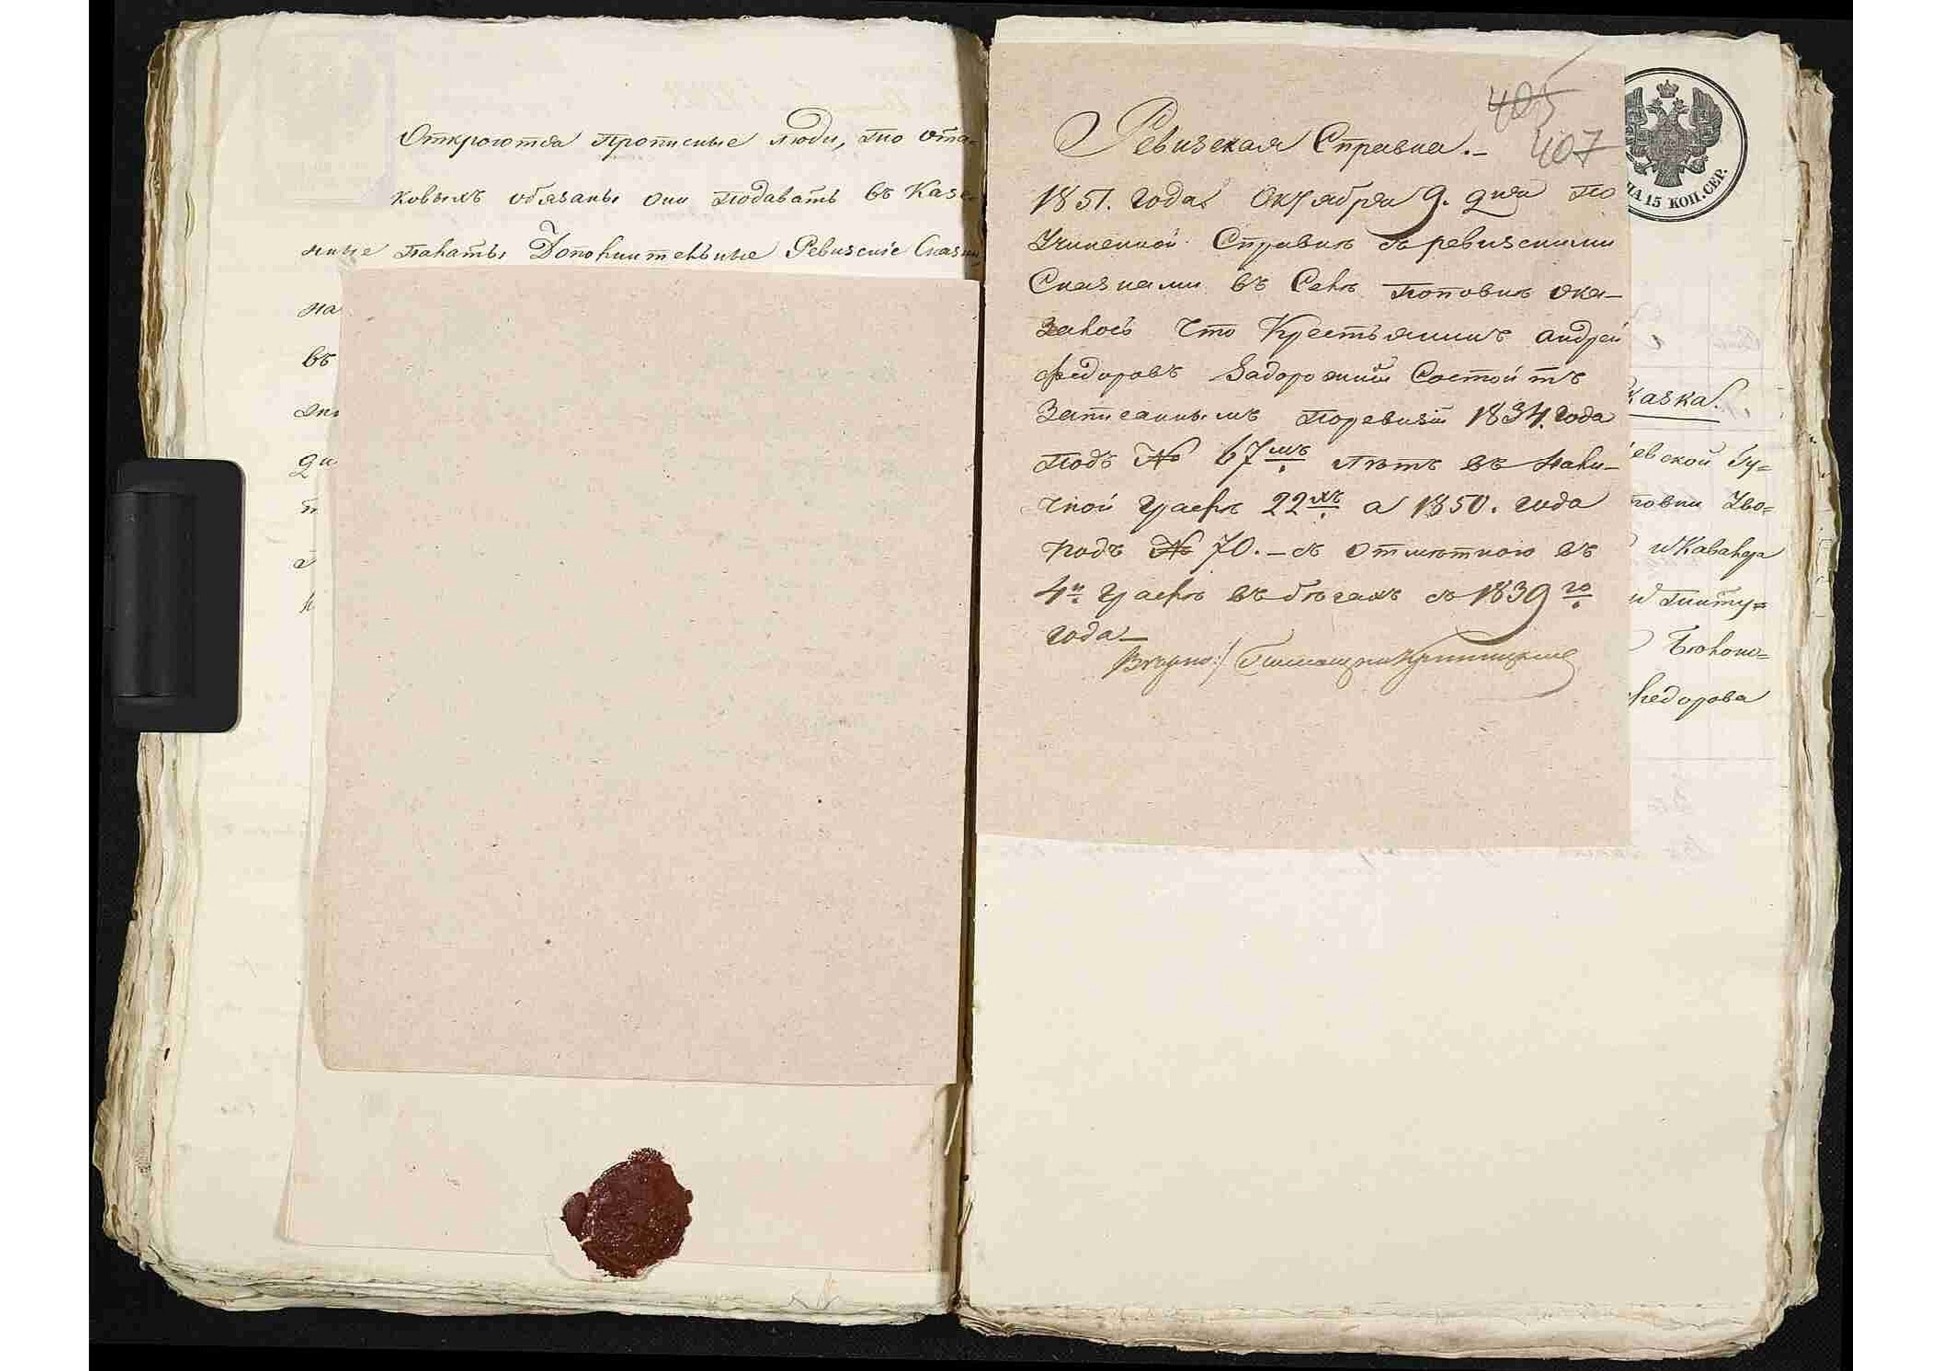 Откроются прописные люди, то ота-
ковыхъ обязаны они подавать въ Казен-
ные Палаты Дополнительные Ревизскіе Сказки
на
въ
405
407
Ревизская Справка.-
1851. года Октября 9. дня по
Учиненной Справкѣ съ ревизскими
Сказками въ Селѣ Поповкѣ ока-
залось что Крестьянинъ Андрей
Федоровъ Задорожній Состоитъ
Записаннымъ поревизіи 1834. года
подъ № 67мъ лѣтъ въ нали-
чной графѣ 22хъ а 1850. года
подъ № 70.- съ отмѣткою въ
4й графѣ въ бѣгахъ съ 1839го
года-
Вѣрно:/
НА 15 КОП. СЕР.
казка.
евской Гу=
повки Уво=
иКавалера
Титу=
Федорова